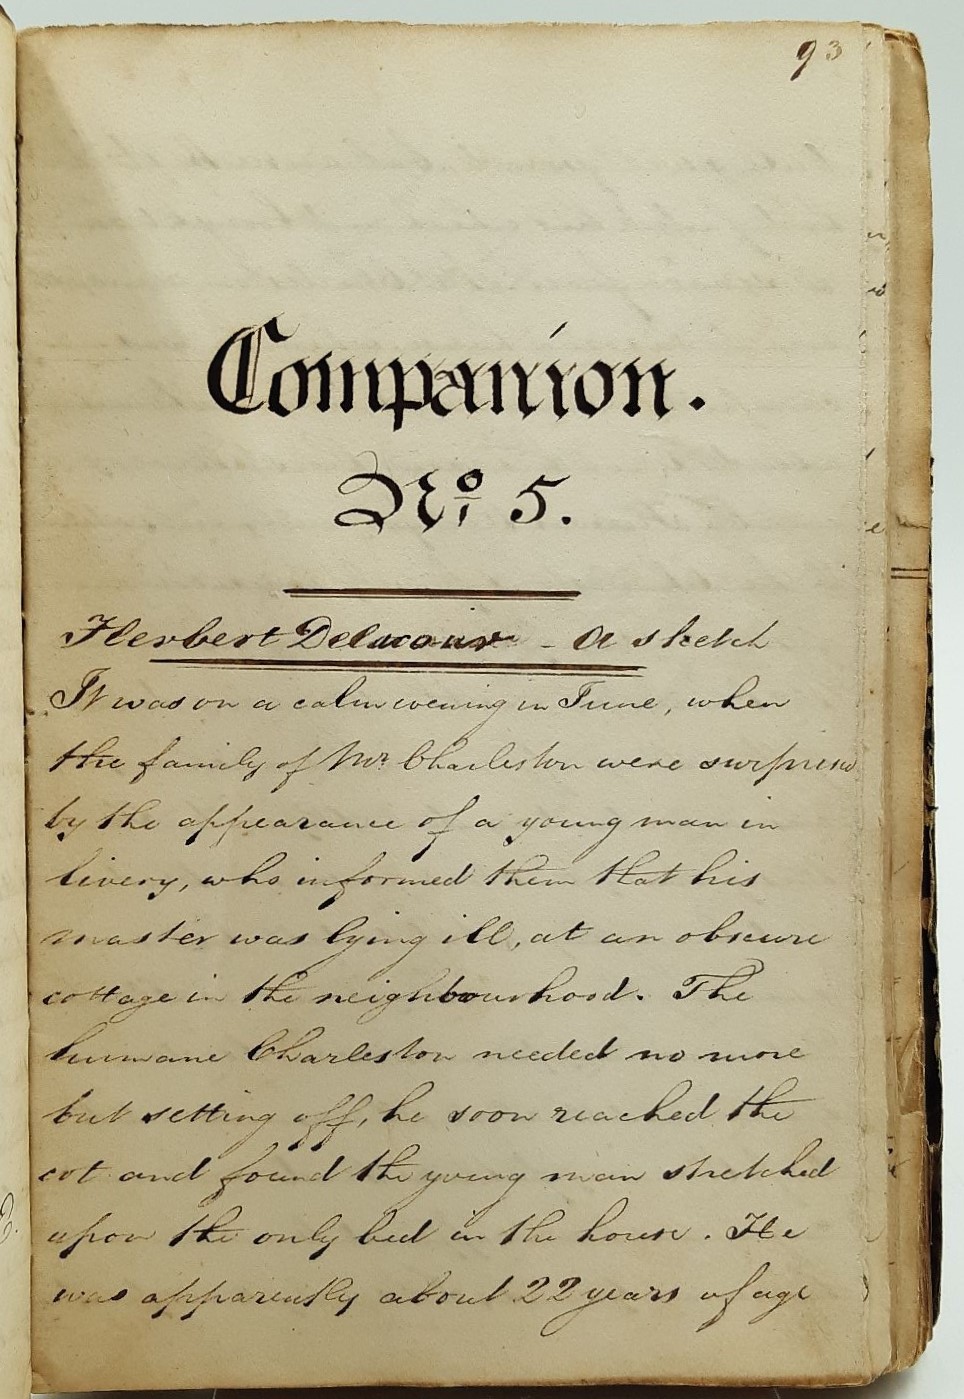 93
Companion.
No. 5.
Herbert Delacour - A sketch
It was on a calm evening in June, when
the family of Mr Charleston were surprised
by the appearance of a young man in
livery, who informed them that his
master was lying ill, at an obscure
cottage in the neighbourhood. The
humane Charleston needed no more
but setting off, he soon reached the
cot and found the young man stretched
upon the only bed in the house. He
was apparently about 22 years of age